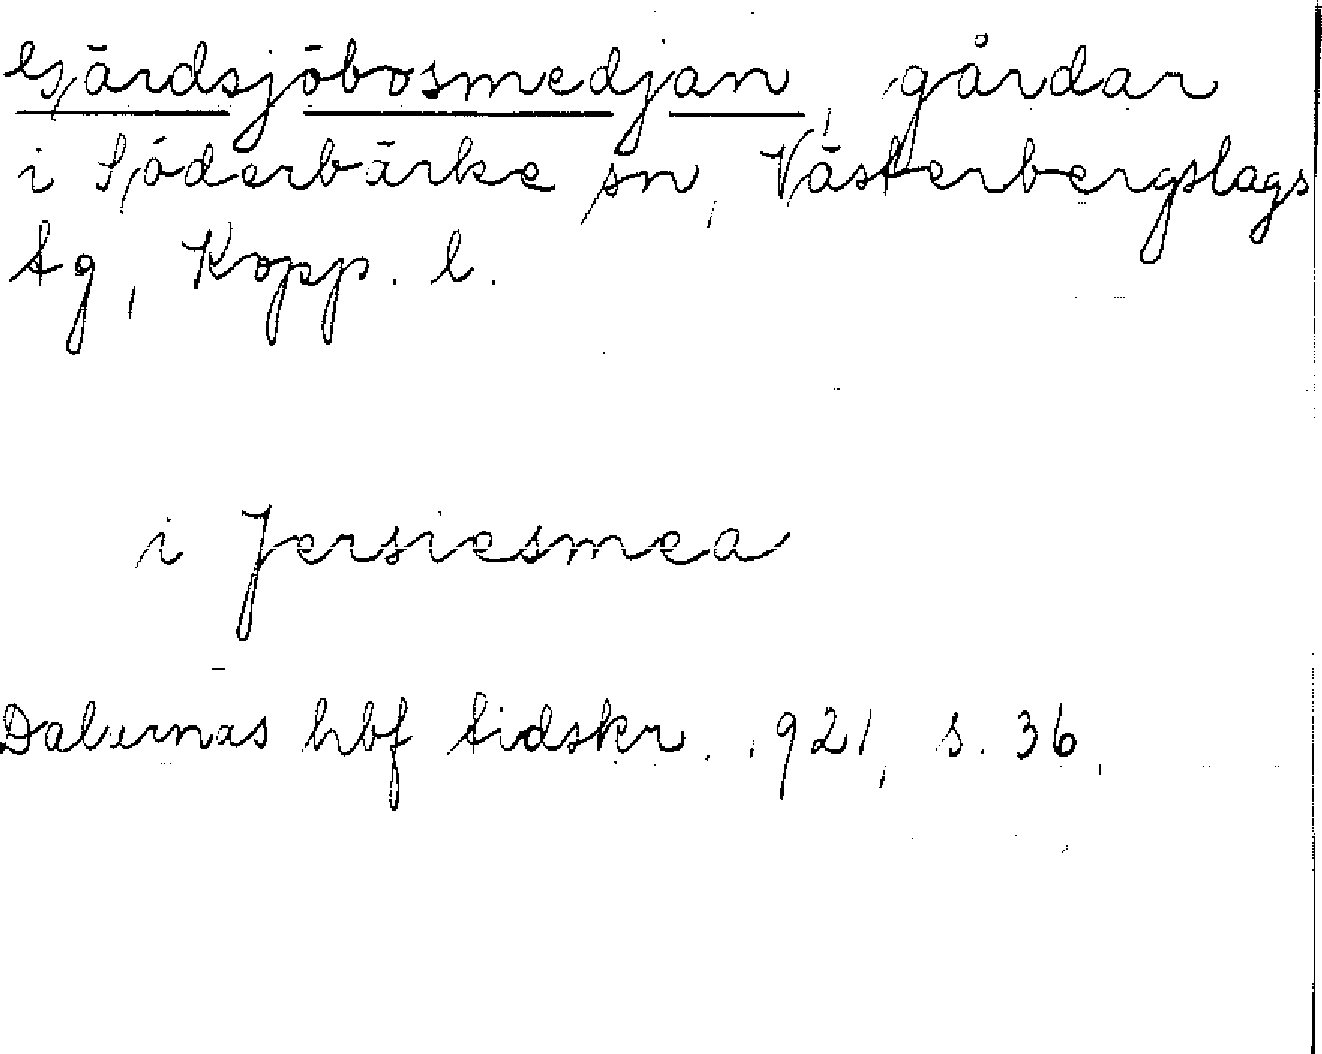 Gärdsjöbosmedjan, gårdar
i Söderbärke sn, Västerbergslags
tg, Kopp. l.
i Jersiesmea
Dalarnas hbf tidskr. 1921, s. 36.